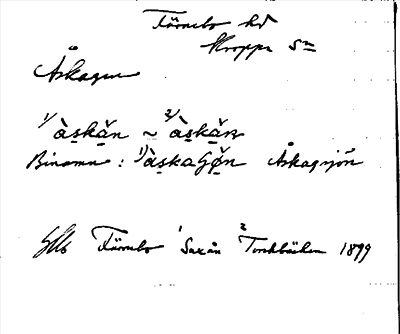 Färnebo hd
Kroppa Sn
Åskagen
1) å̀skän ~ 2) å̀skän
Binamn: 1) å̀skaGø̌n Åskagsjön
Färnebo 1 Saxån 2 Torskbäcken 1899